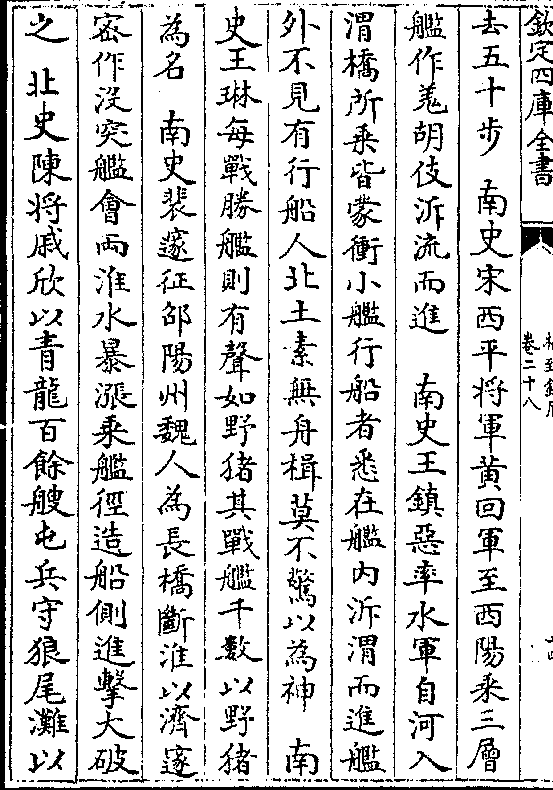 欽定四庫全書
卷二十八
去五十步　南史宋西平将軍黄回軍至西陽乗三層
艦作羗胡伎泝流而進　南史王鎮惡率水軍自河入
渭橋所乗皆蒙衝小艦行船者悉在艦内泝渭而進艦
外不見有行船人北土素無舟楫莫不驚以為神　南
史王琳每戰勝艦則有聲如野猪其戰艦千數以野猪
為名　南史裴邃征邵陽州魏人為長橋斷淮以濟邃
宻作沒突艦會雨淮水暴漲乗艦徑造船側進擊大破
之　北史陳将戚欣以青龍百餘艘屯兵守狼尾灘以